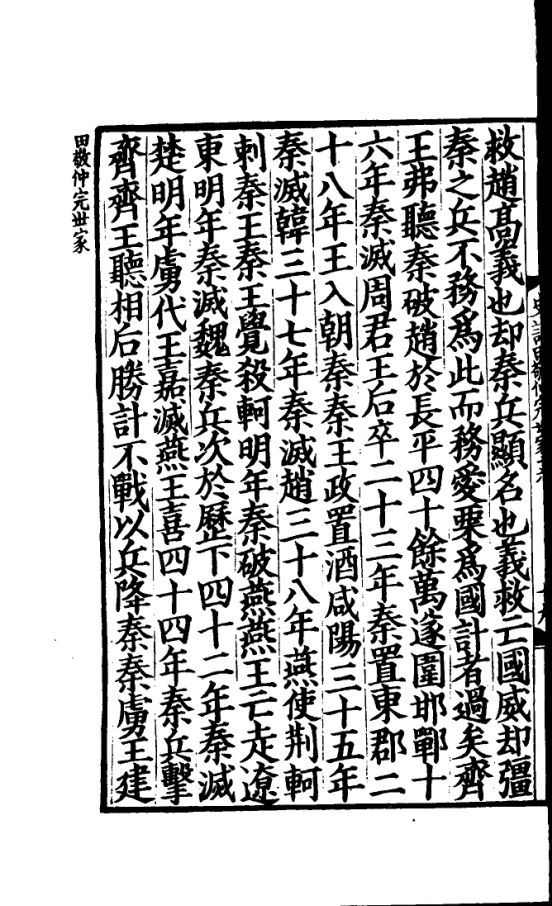 救趙高義也却秦兵顯名也義救亡國威却彊
秦之兵不務爲此而務愛粟爲國計者過矣齊
王弗聽秦破趙於長平四十餘萬遂圍邯鄲十
六年秦滅周君王后卒二十三年秦置東郡二
十八年王入朝秦秦王政置酒咸陽三十五年
秦滅韓三十七年秦滅趙三十八年燕使荆軻
刺秦王秦王覺殺軻明年秦破燕燕王亡走遼
東明年秦滅魏秦兵次於歷下四十二年秦滅
楚明年虜代王嘉滅燕王喜四十四年秦兵擊
齊齊王聽相后勝計不戰以兵降秦秦虜王建
田敬仲完世家